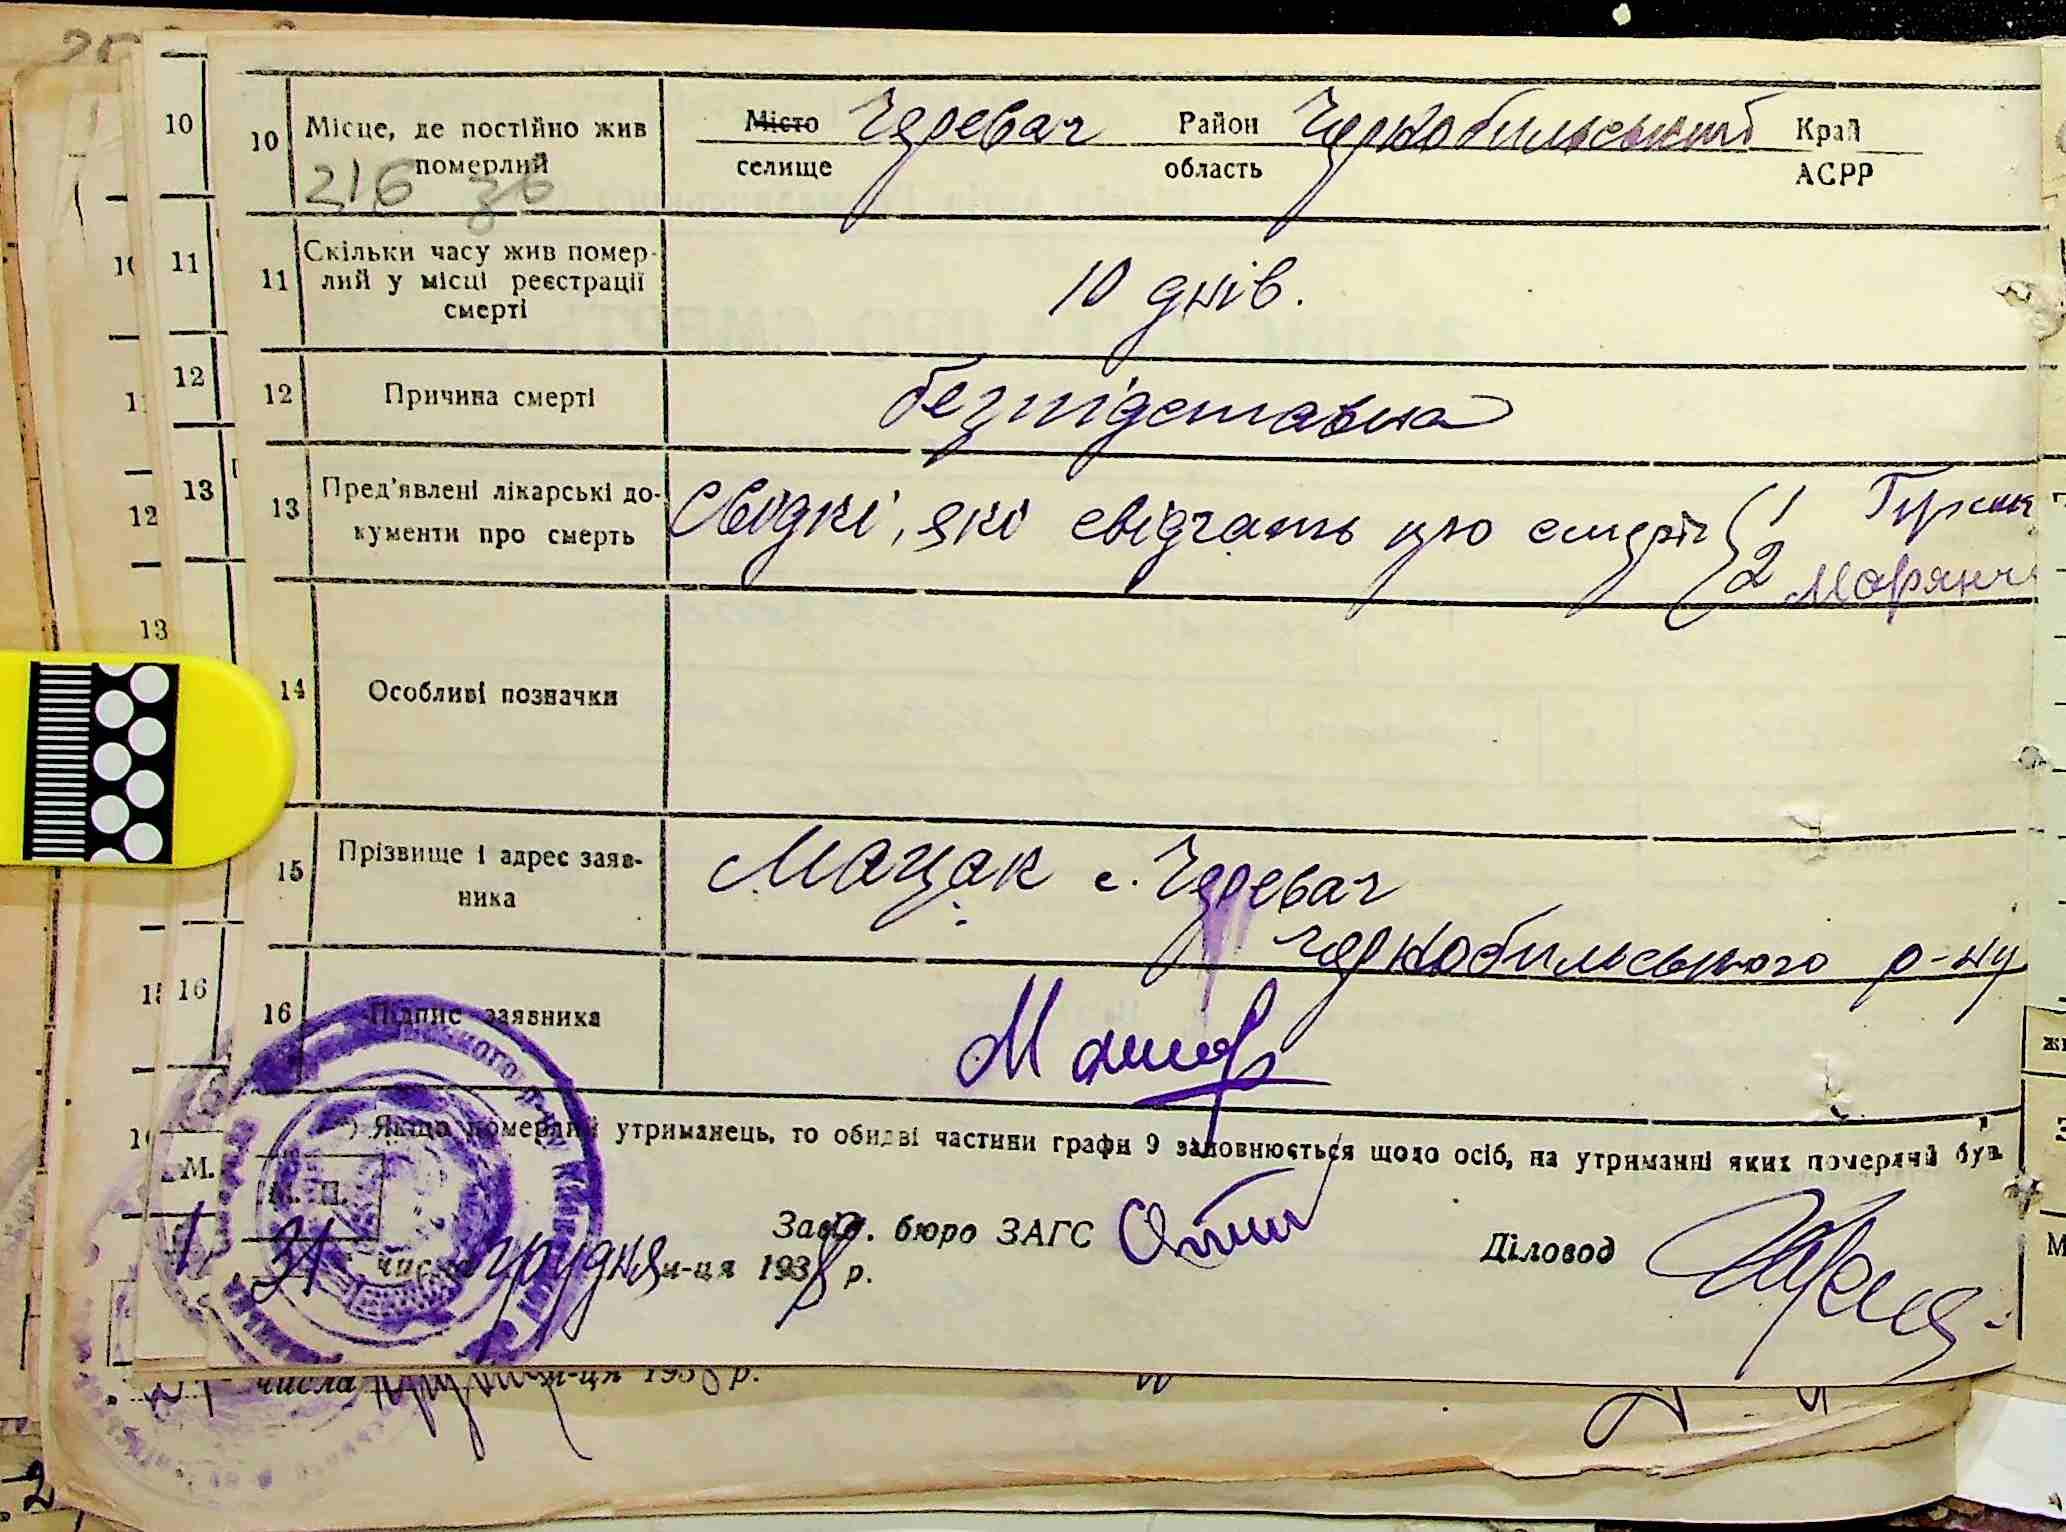 10 10 Місце, де постійно жив Місто Черевач Район Чорнобильський Край
померлий селище область АСРР
216 зв
11 11 Скільки часу жив помер-
лий у місці реєстрації 10 днів.
смерті
12 12 Причина смерті безпідставна
13 13 Пред'явлені лікарські до- Свідкі, які свідчать про смерть { 1
кументи про смерть 2
14 Особливі позначки
15 Прізвище і адрес заяв- Мацак с. Черевач
ника Чорнобильського р-ну
16 16 Підпис заявника
) Якщо померлий утриманець, то обидві частини графи 9 заповнюється щодо осіб, на утриманні яких померлий був
М. П.
Завід. бюро ЗАГС Діловод
31 числа грудня м-ця 1938 р.
числа м-ця 1938 р.